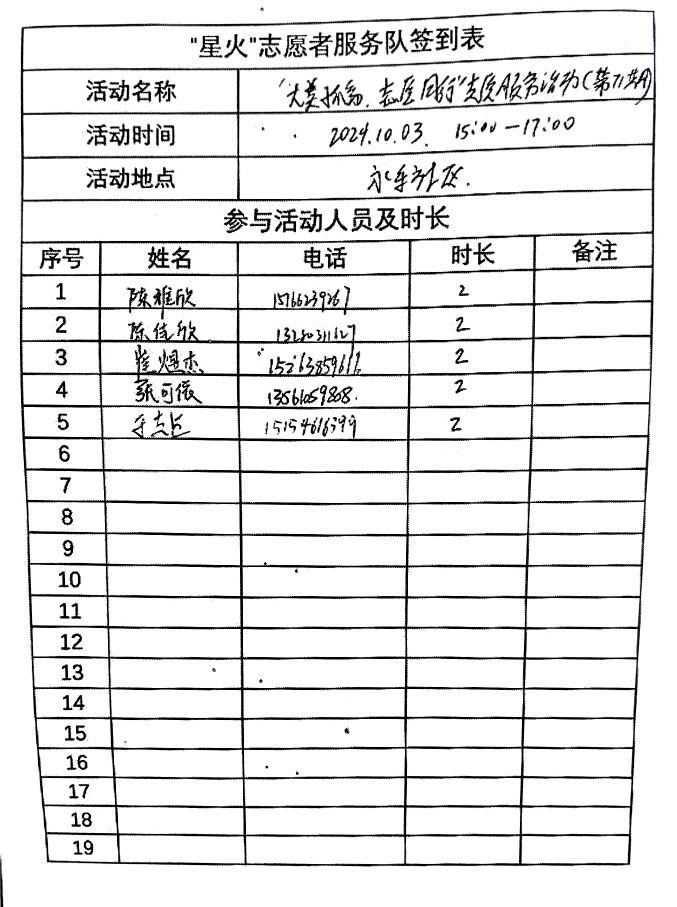 "星火"志愿者服务队签到表
活动名称 志医同行"支医服务活动(第71期)
活动时间 2024.10.03. 15:00—17:00
活动地点 永乐社区.
参与活动人员及时长
序号 姓名 电话 时长 备注
1 陈雅欣 15166239267 2
2 陈佳欣 2
3 2
4 张可依 13561059808. 2
5 于志 15154616399 2
6
7
8
9
10
11
12
13
14
15
16
17
18
19